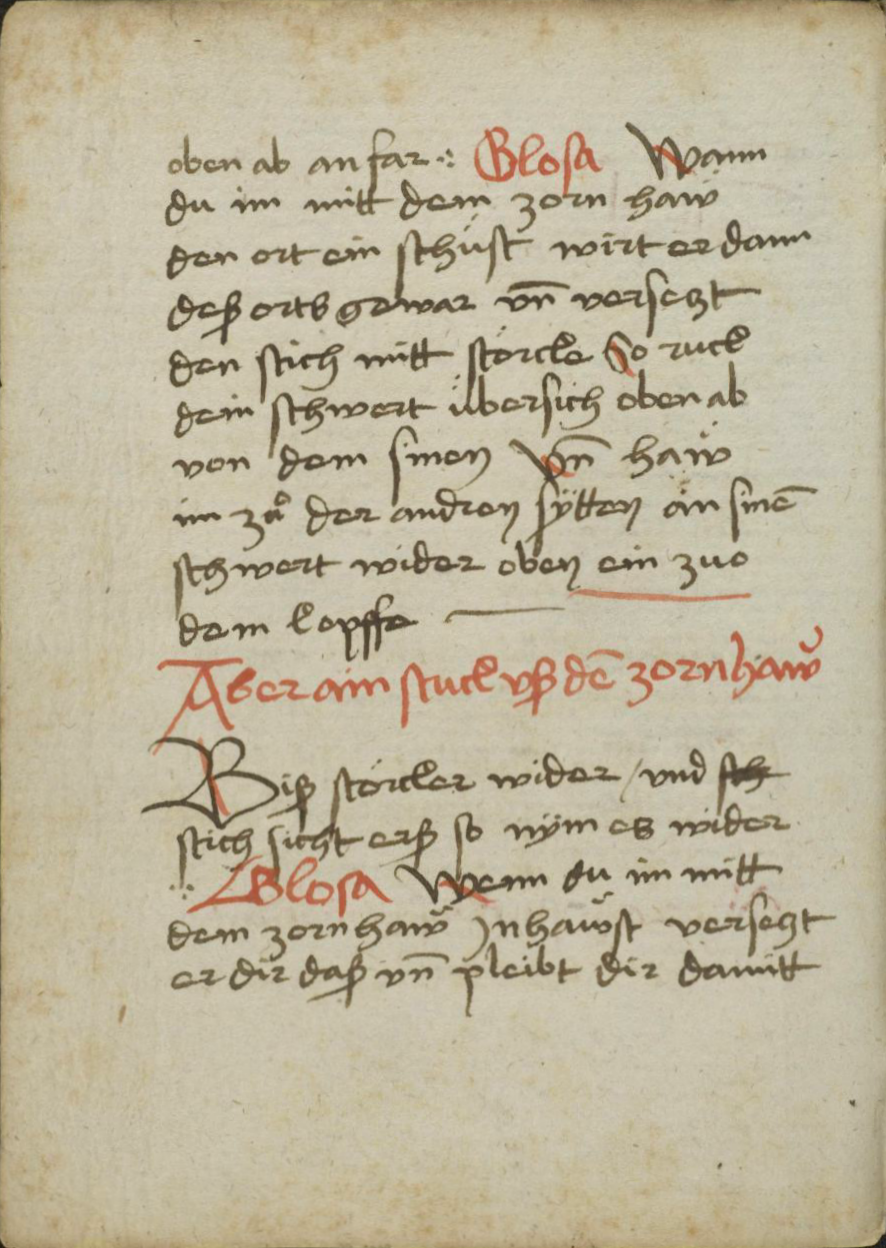 oben ab an far ·:· Glosa Wann
du im mitt dem zorn haw̎
den ort ein schüst wirt er dann
deß ortß gewar vn̄ verseczt
den stich mitt störcke So ruck
dein schwert übersich oben ab
von dem sinen Vn̄ haw̎
im zuͦ der andren sÿtten an sinē
schwert wider oben ein zuo
dem kopffe
Aber ain stuck vß dē zornhaw̎
Biß störcker wider / vnd sch
stich sicht erß so nÿm es wider
·:· Glosa Wenn du im mitt
dem zornhaw̎ Jnhaw̎st verseczt
er dir daß vn̄ pleibt dir damitt